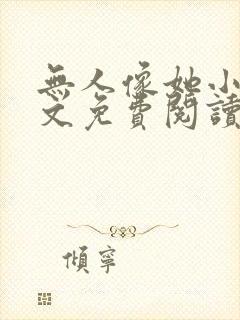 無人像她小
文免費閱讀
傾寧